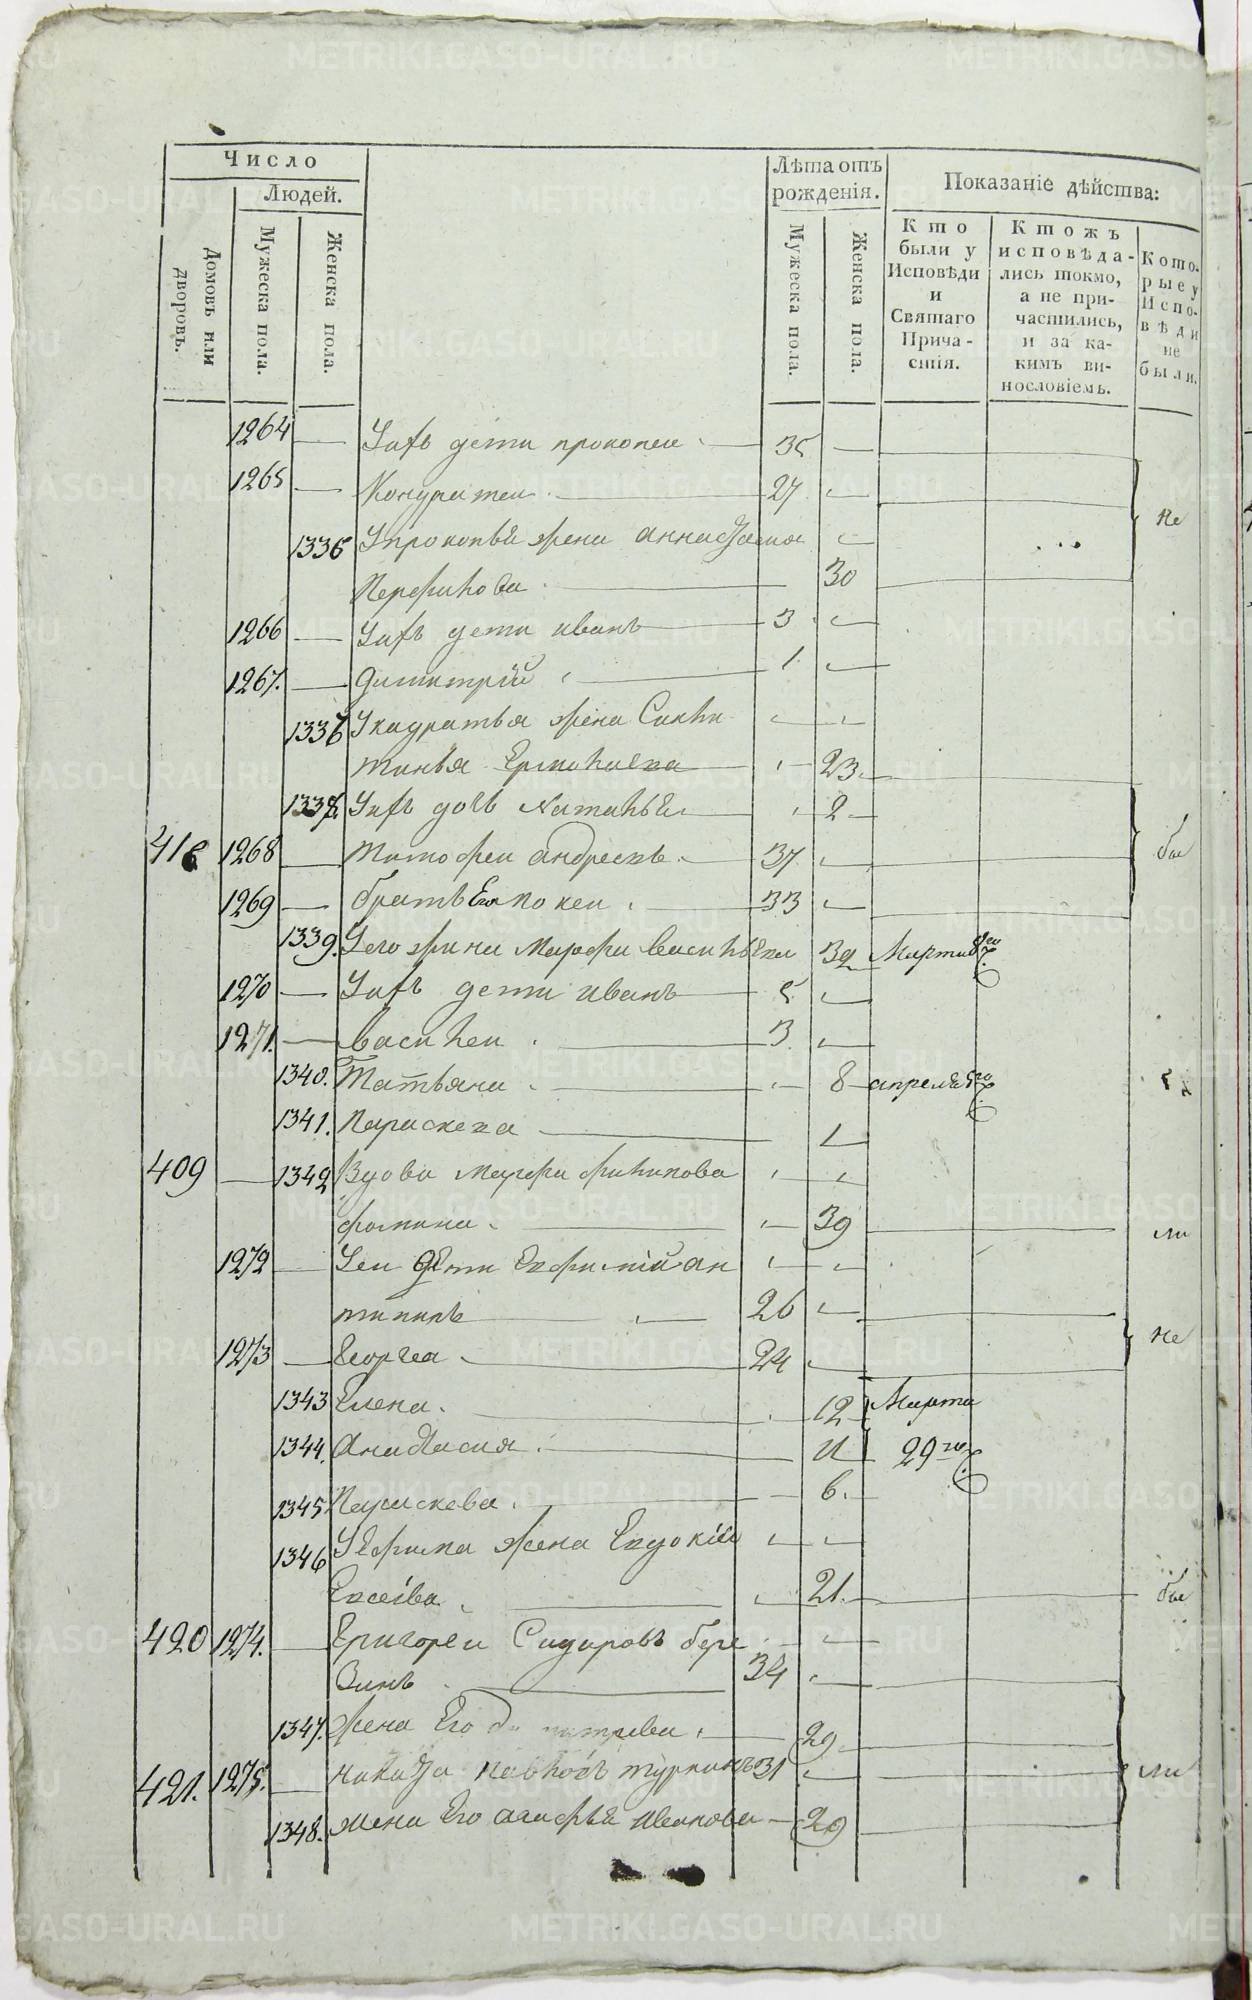 Число
Людей.
Домовъ или дворовъ.
Мужеска пола.
Женска пола.
Лѣта отъ рожденія.
Мужеска пола.
Женска пола.
Показаніе дѣйства:
Кто были у Исповѣди и Святаго Причастія.
Ктожъ исповѣдались токмо, а не причастились, и за какимъ винословіемъ.
Которые у Исповѣди не были.
1264 — Уихъ дети прокопеи 35 —
1265 — Кондратеи 27 —
не
1335 Упрокопья жена аннастасия —
Перфилова 30
1266 — Уихъ дети иванъ 3 —
1267. — Димитрій 1 —
1336 Укадратья жена
Ермолаева 23
1337. Уихъ дочь Наталья 2
418 1268 — Тимофеи андреевъ 37 —
бы
1269 — братъ Его 33 —
1339. Уего жина Марфа васильева 32 Марта
1270 — Уихъ дети иванъ 5 —
1271. — василеи 3 —
1340. Татьяна 8 апреля
1341. Параскева 1
409 — 1342 Вдова Марфа филипова
фомина 39
ли
1272 — Уеи дети Ефимій ан
типинъ 26 —
не
1273 — Георгеи 24 —
1343 Елена 12 Марта
1344. анастасия 11 29го
1345 Параскева 6.
1346 Уефима жена Евдокія
21.
бы
420 1274. — Григореи Сидаровъ бере
зинъ 34 —
1347. жена Его петрова 29
421. 1275. — никита павловъ туркинъ 31 —
ли
1348. жена Его агафья иванова 29
METRIKI.GASO-URAL.RU